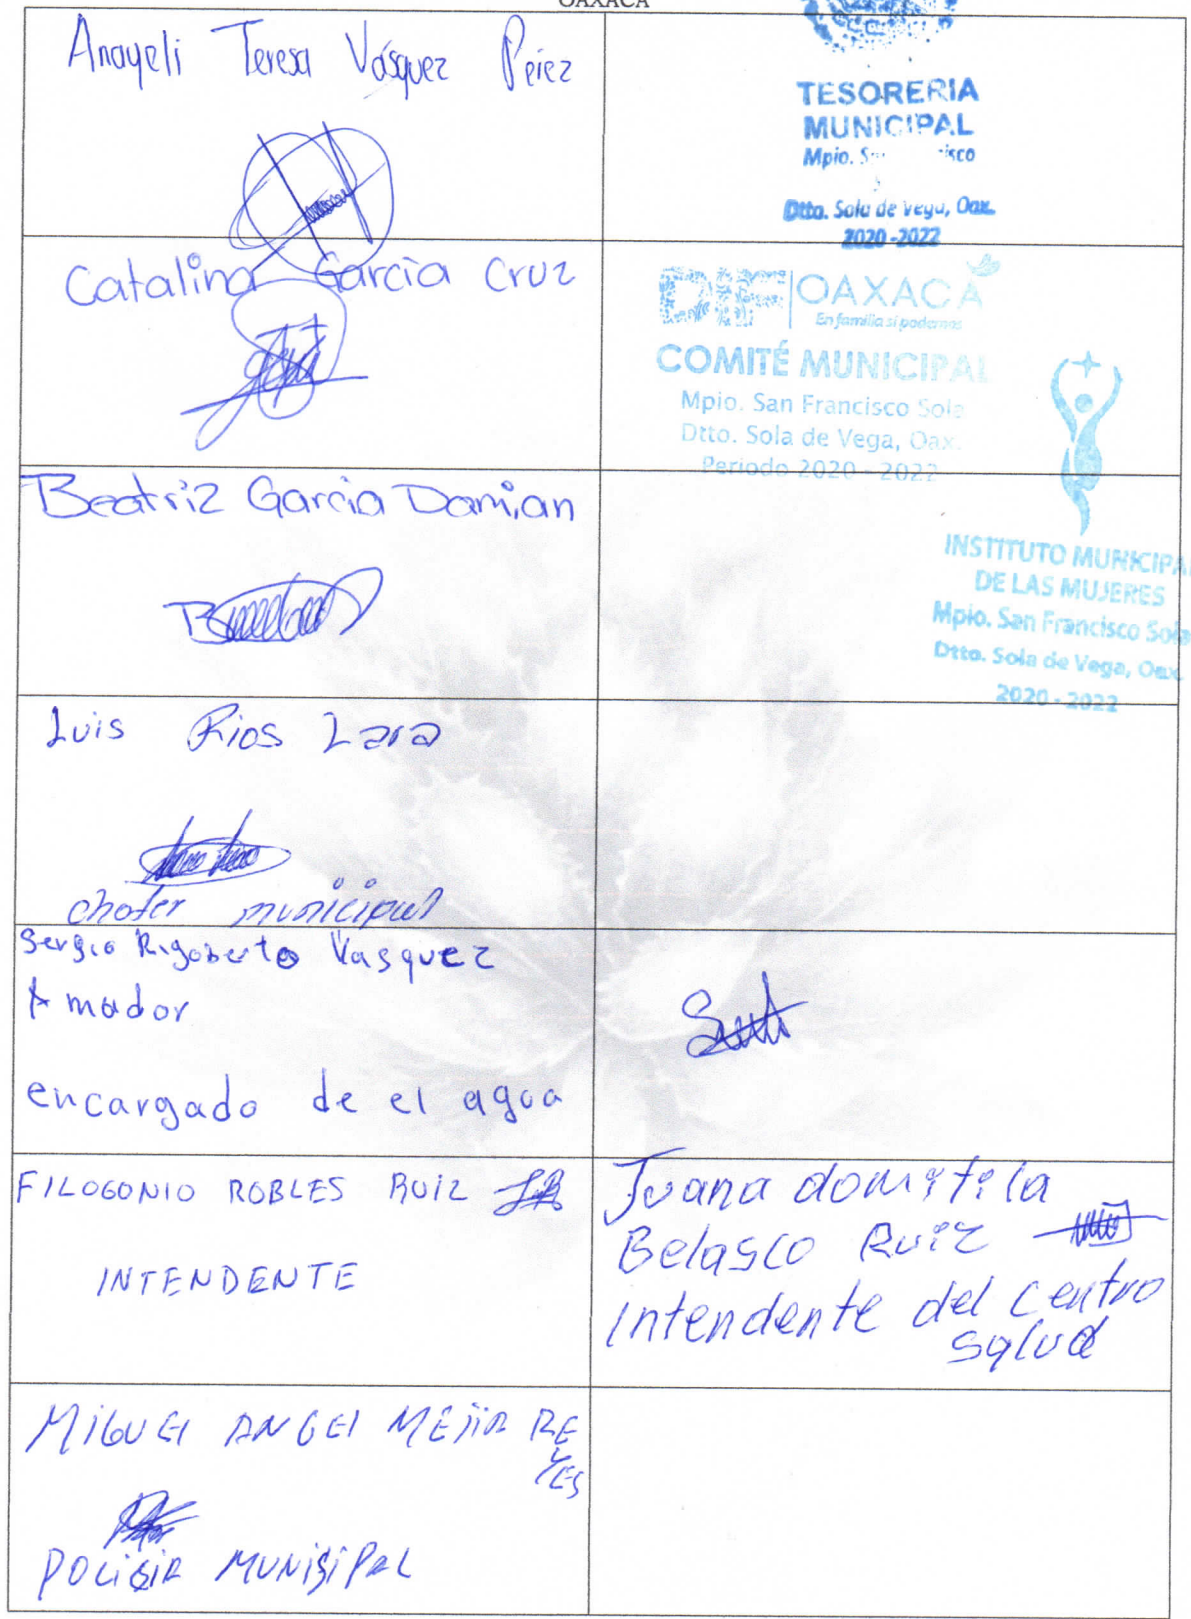 OAXACA
Anayeli Teresa Vásquez Pérez
TESORERIA
MUNICIPAL
Mpio. San isco
Dtto. Sola de Vega, Oax.
2020-2022
Catalina García Cruz
DIF OAXACA
En familia sí podemos
COMITÉ MUNICIPAL
Mpio. San Francisco Sola
Dtto. Sola de Vega, Oax.
Periodo 2020 - 2022
Beatriz Garcia Damian
INSTITUTO MUNICIPAL
DE LAS MUJERES
Mpio. San Francisco Sola
Dtto. Sola de Vega, Oax.
2020 - 2022
Luis Rios Lara
chofer municipal
Sergio Rigoberto Vasquez
Amador
encargado de el agua
FILOGONIO ROBLES RUIZ
INTENDENTE
Juana domitila
Belasco Ruiz
Intendente del centro
salud
MiGUEl ANGEl MEJiA RE
YES
POLiSiA MUNiSiPAL